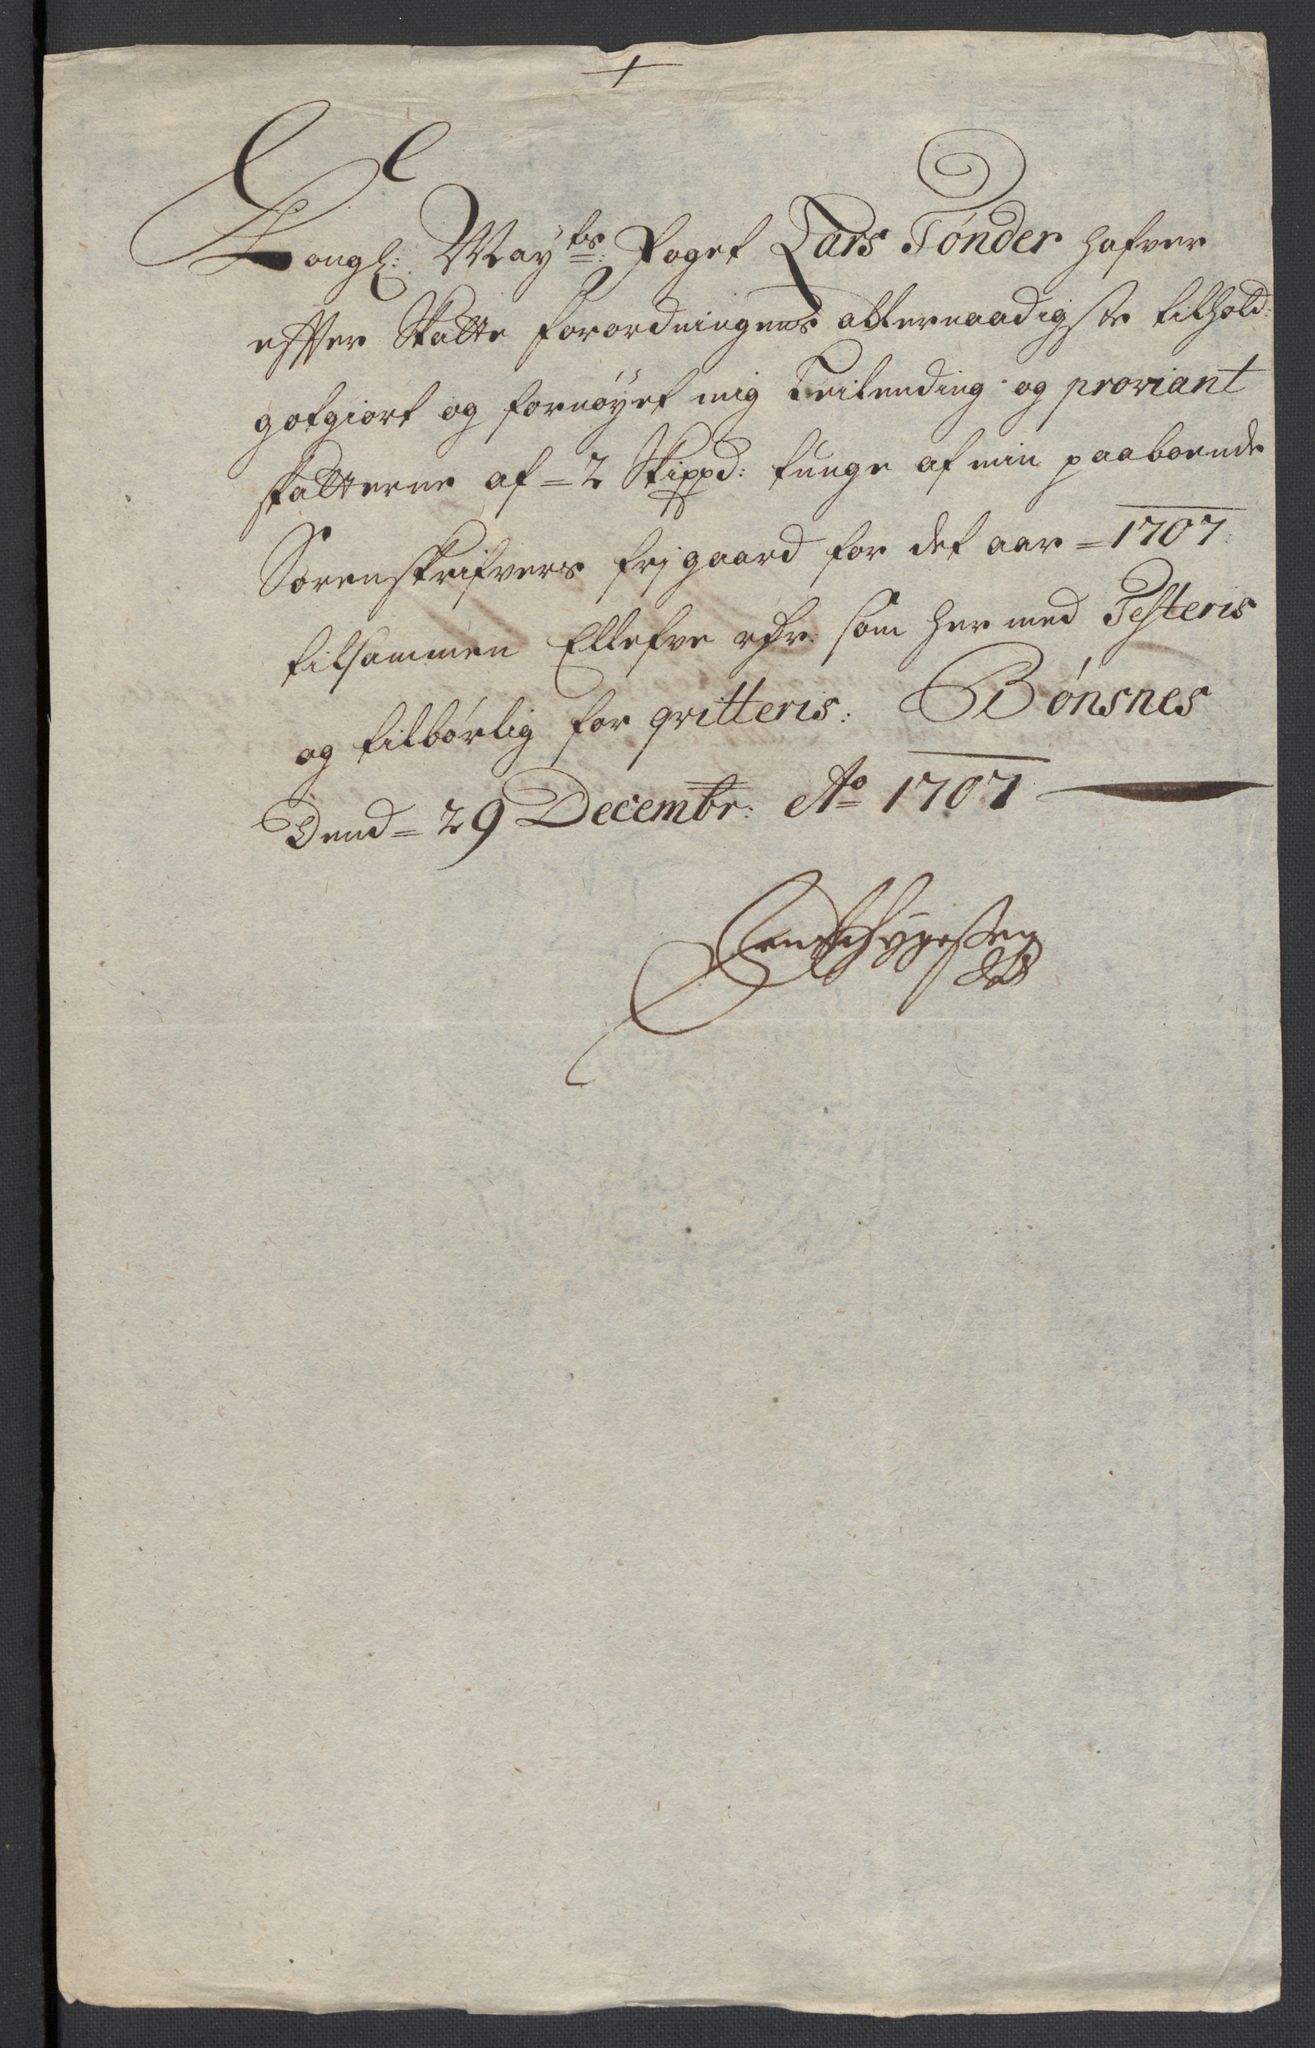 Kongl: May:ts Foget Lars Tønder hafver
effter Skatte forordningens allernaadigste tilhold:
gotgiort og fornøyet mig Leilending og proviant
skatterne af = 2 Skippd: tunge af min paaboende
Sorenskrifvers frjgaard for det aar = 1707:
tilsammen Ellefve rdr: som her med Testeris
og tilbørlig for qvitteris: Bønsnes
Dend = 29 Decembr: Ao 1707